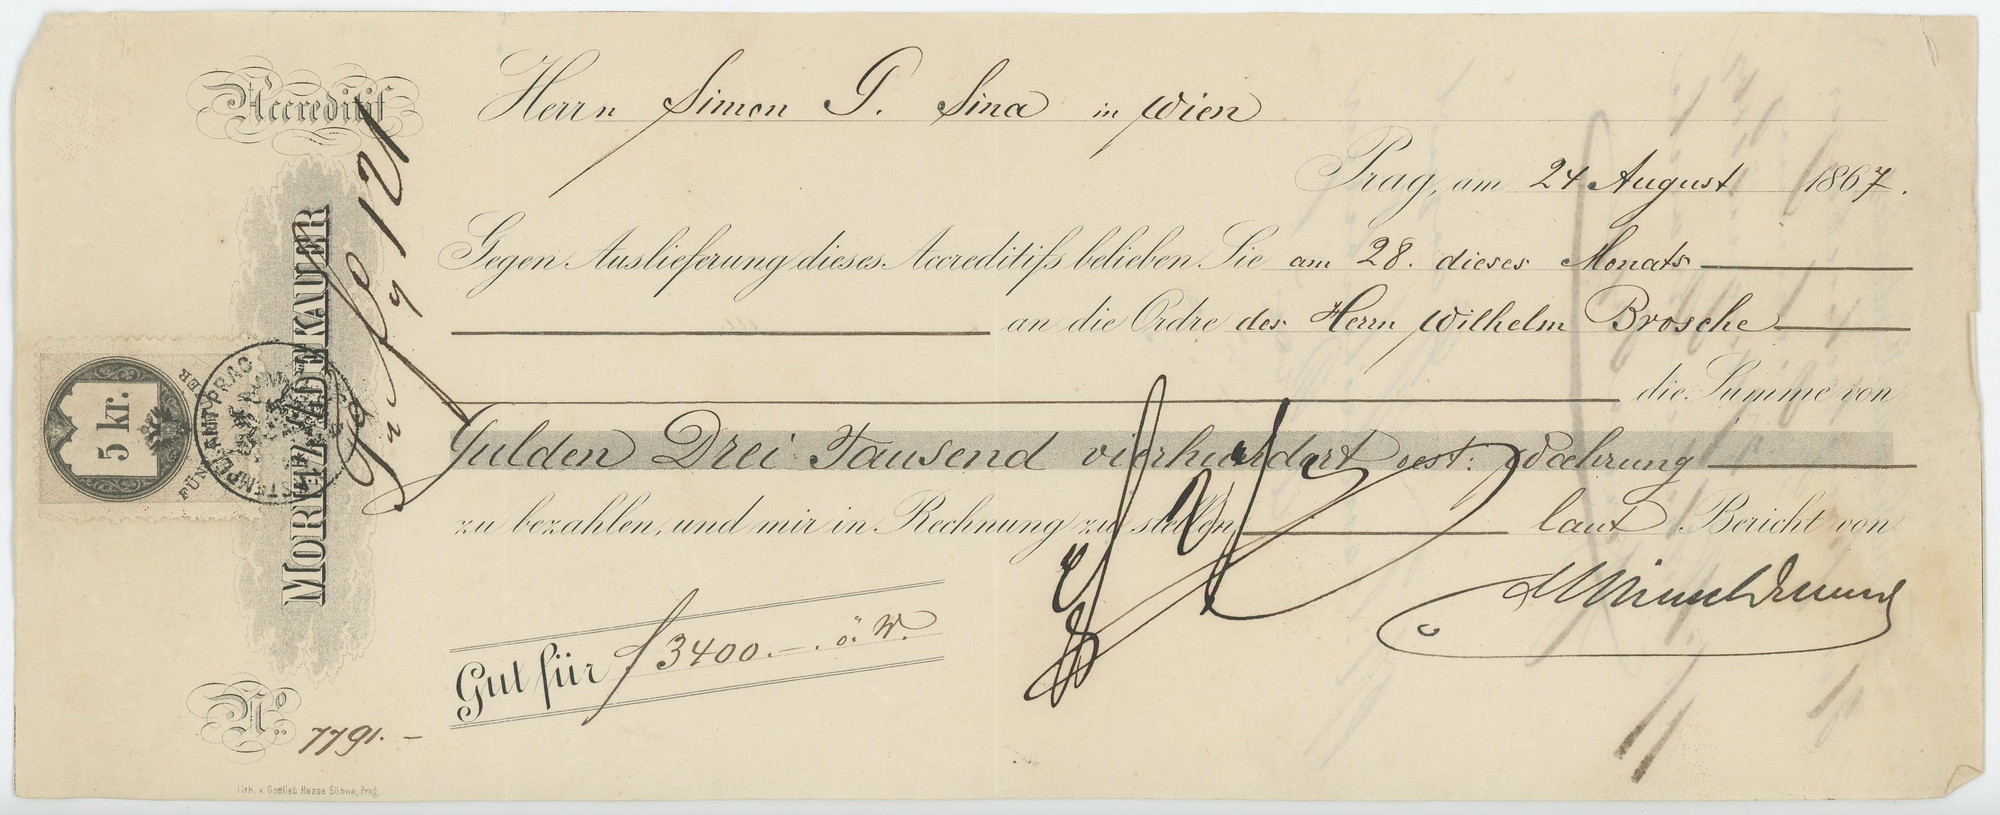 Accreditif
Herrn Simon G. Sina in Wien
Prag, am 24 August 1867.
Gegen Auslieferung dieses Accreditifs belieben Sie am 28. dieses Monats
an die Ordre des Herrn Wilhelm Brosche
die Summe von
Gulden Drei Tausend vierhundert oest: Waehrung
zu bezahlen, und mir in Rechnung zu stellen laut Bericht von
Gut für f 3400.-. ö. W.
No. 7791.-
MORITZ ZDEKAUER
5 kr.
STEMPELAMT PRAG
FÜR
121
Lith. v. Gottlieb Haase Söhne, Prag.